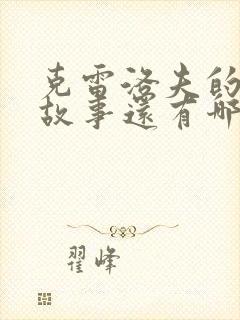 克雷洛夫的
故事還有哪
翟峰